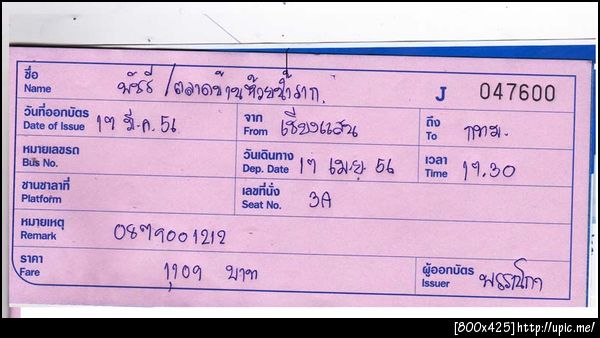 ชื่อ พัชรี / ตลาดบ้านห้วยน้ำราก. J 047600
Name
วันที่ออกบัตร ๑๗ มี.ค. 56 จาก เชียงแสน ถึง กทม.
Date of Issue From To
หมายเลขรถ วันเดินทาง 17 เม.ย. 56 เวลา 17.30
Bus No. Dep. Date Time
ชานชาลาที่ เลขที่นั่ง 3A
Platform Seat No.
หมายเหตุ 0879001212
Remark
ราคา บาท ผู้ออกบัตร พรรณิภา
Fare Issuer
[800x425] http://upic.me/